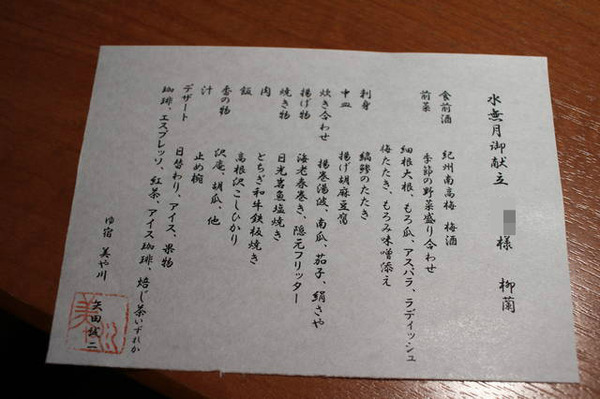 水無月御献立 様 柳蘭
食前酒 紀州南高梅 梅酒
前菜 季節の野菜盛り合わせ
細根大根、もろ瓜、アスパラ、ラディッシュ
梅たたき、もろみ味噌添え
刺身 縞鯵のたたき
中皿 揚げ胡麻豆腐
炊き合わせ 揚巻湯波、南瓜、茄子、絹さや
揚げ物 海老春巻き、隠元フリッター
焼き物 日光岩魚塩焼き
肉 とちぎ和牛鉄板焼き
飯 高根沢こしひかり
香の物 沢庵、胡瓜、他
汁 止め椀
デザート 日替わり、アイス、果物
珈琲、エスプレッソ、紅茶、アイス珈琲、焙じ茶いずれか
ゆ宿 美や川
矢田誠二